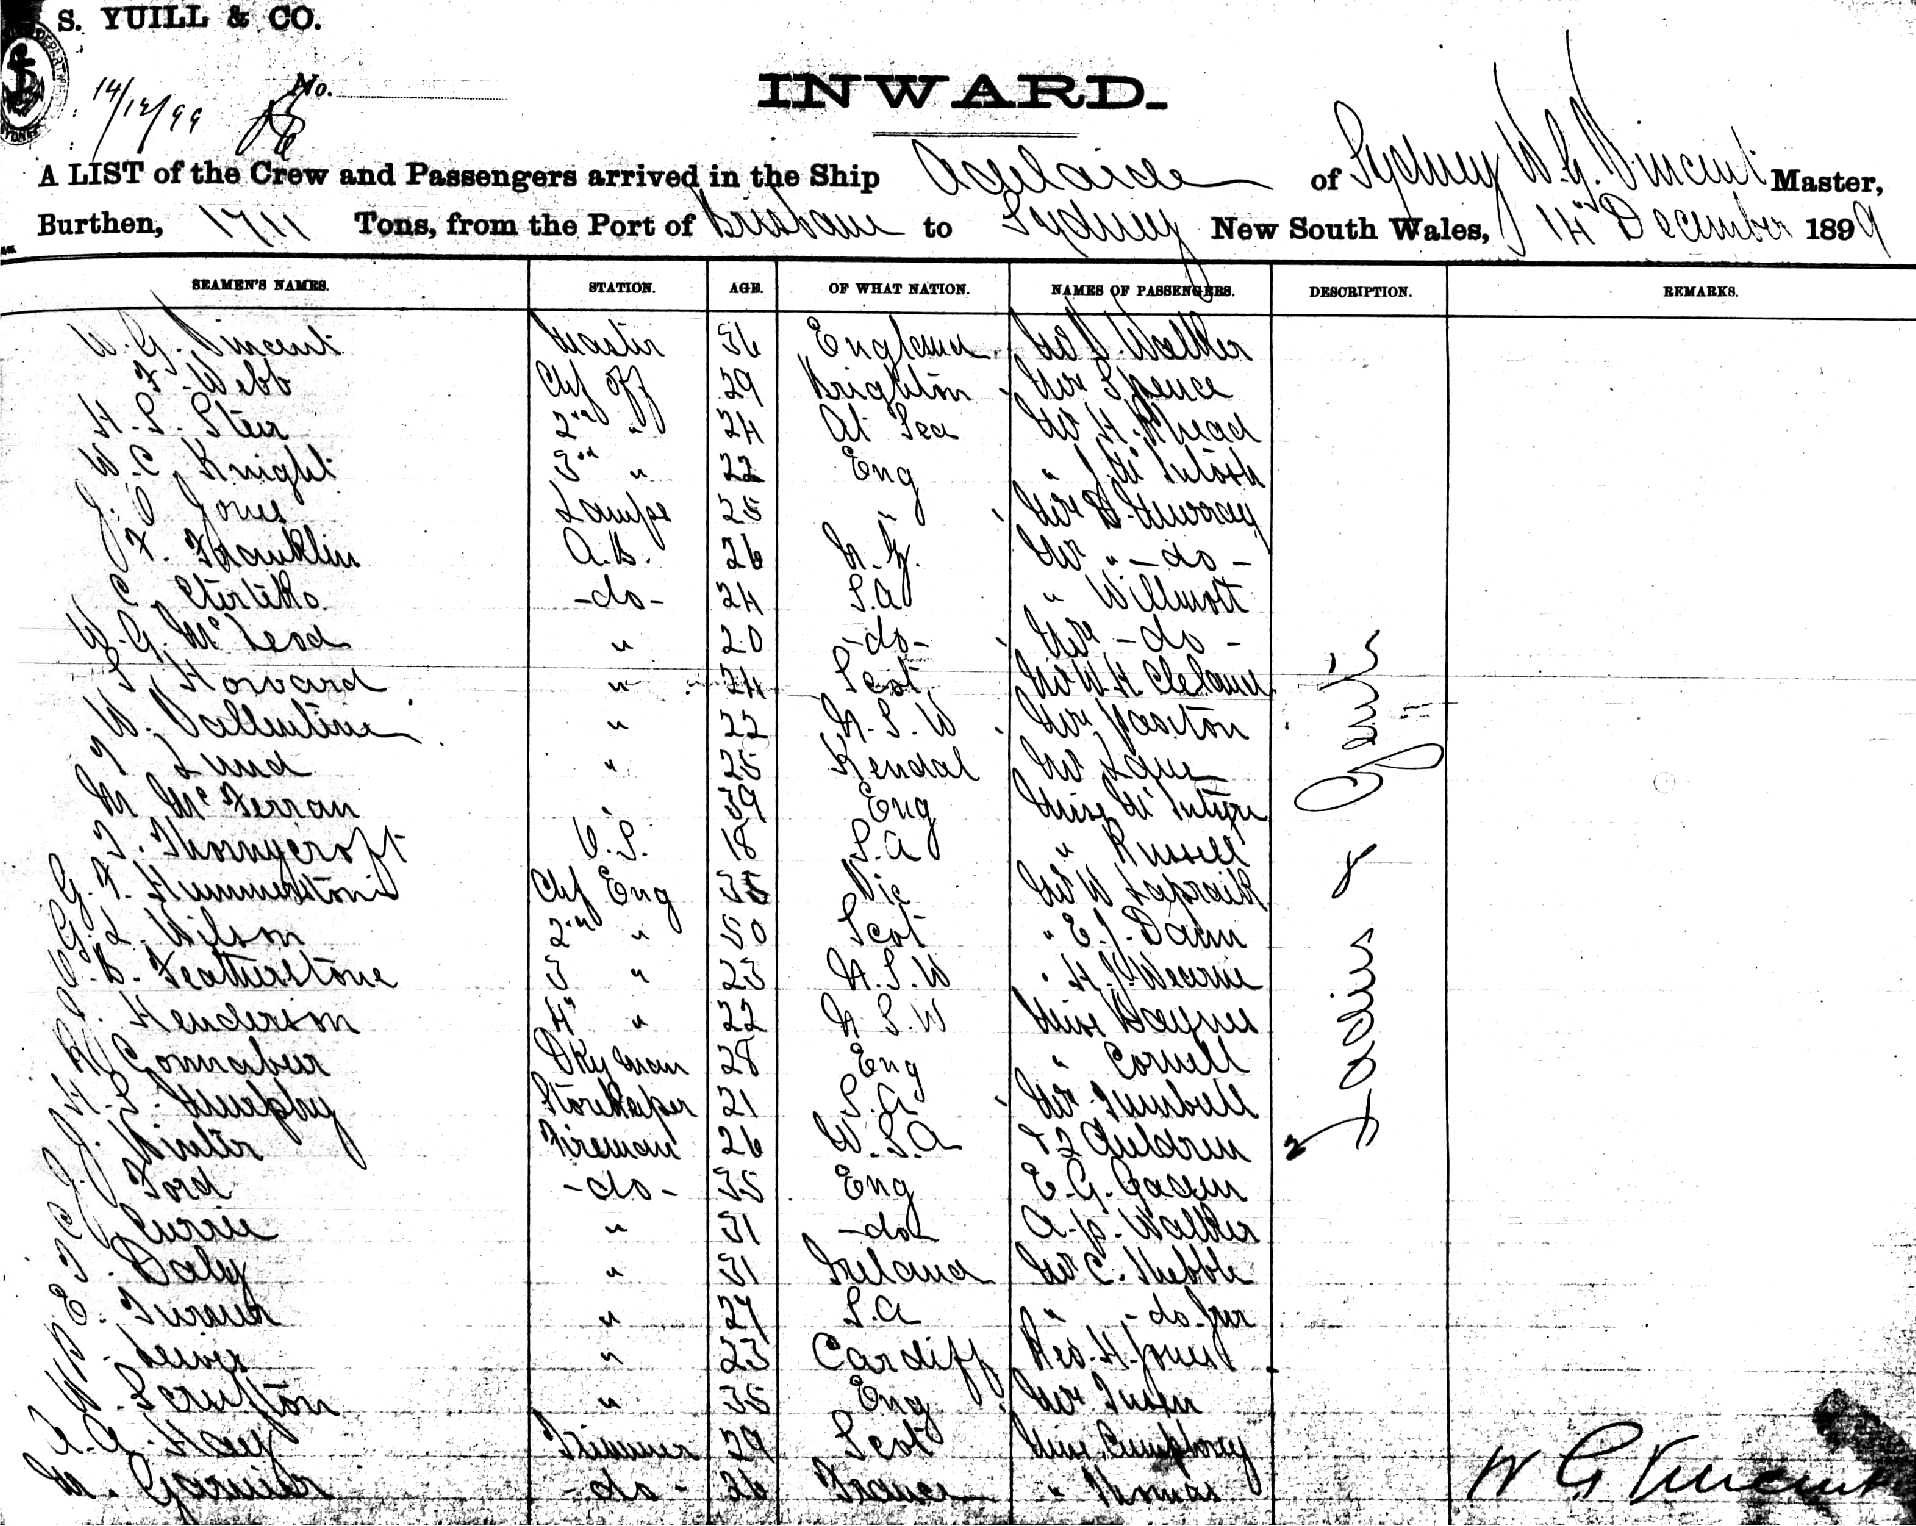 S. YUILL & CO.
14/12/99 No.
INWARD.
A LIST of the Crew and Passengers arrived in the Ship Adelaide of Sydney W. G. Vincent Master,
Burthen, 1711 Tons, from the Port of Brisbane to Sydney New South Wales, 14th December 1899
SEAMEN'S NAMES. STATION. AGE. OF WHAT NATION. NAMES OF PASSENGERS. DESCRIPTION. REMARKS.
W. G. Vincent Master 36 England Walker
F. Webb Chf Off 29 Brighton Mrs Spence
H. S. Steir 2nd " 24 At Sea Mr H. Rhead
W. C. Knight 3rd " 22 Eng " J. McIntosh
J. O. Jones Lamps 25 " Mrs D. Murray
F. Franklin A.B. 26 N.Z. Mr " -do-
C. -do- 24 S.A " Willmott
W. G. McLeod " 20 -do- Mrs -do-
S. Howard " 24 Scot Mr W. H. Cleland
W. Vallentine " 22 N.S.W Mrs Paxton
T Lund " 25 Kendal Mr Lane
M McFerran " 39 Eng Miss McIntyre
T. Thornycroft O.S. 18 S.A " Russell
G. F. Hummerstone Chf Eng 35 Vic Mr W Lapraik
G. L. Wilson 2nd " 50 Scot " E. J. Dann
B. Featherstone 3 " 23 N.S.W " H. Wearne
Henderson 4th " 22 N S.W Miss Baynes
Connabeer Dky man 28 Eng " Cornell
S. Murphy Storekeeper 21 S.A Mrs Turnbull
Winter Fireman 26 W.S.A & 2 Children
Ford -do- 35 Eng E. G. Gaden
Currie " 31 -do- A. P. Walker
Daly " 31 Ireland Mr C. Hebble
Turner " 27 S.A " -do- Jnr
" 23 Cardiff Rev. H. Jones
Scruton " 35 Eng Mrs
A. Hay Trimmer 29 Scot Miss Cumphrey
M. Garnier -do- 26 France " Thomas
Ladies & Gents
W G Vincent